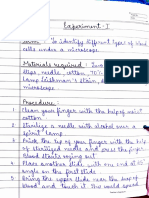 Experiment - 1
To identify different types of blood
cells under a microscope.
Materials required :
slips, needle, cotton, 70%
stain,
microscope
Procedure :
1 Clean your finger with the help of
cotton
2 Sterilise a needle with alcohol over a
spirit lamp
3 Prick the tip of your finger with the help
of sterilized needle and press the finger
blood starts oozing out
4 another slide with one end at
angle on the first slide
5 Bring the upper slide near the bead of
blood and touch it the wand